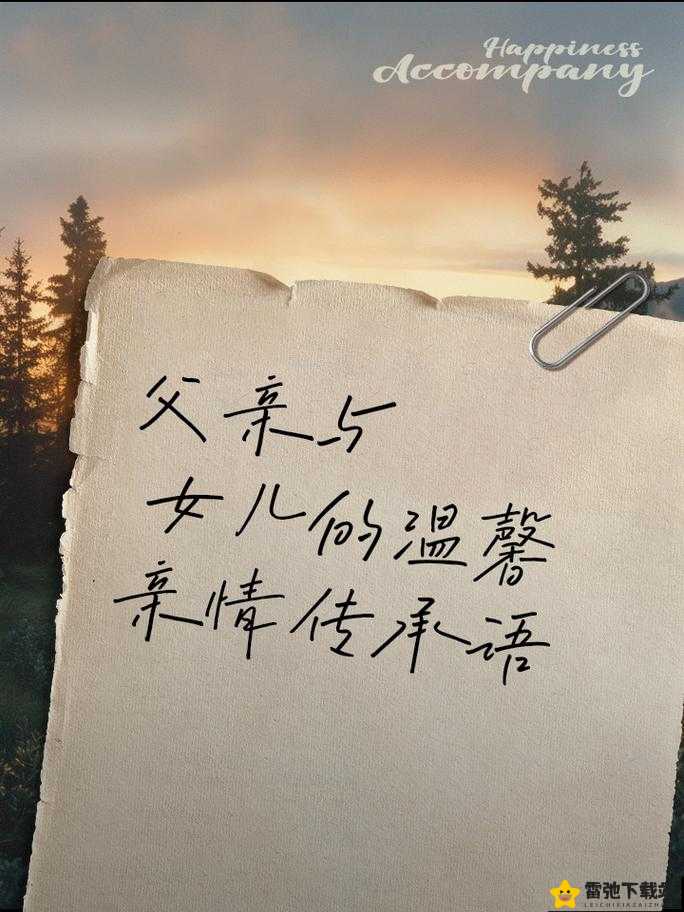 Happiness
Accompany
父亲与
女儿的温馨
亲情传承语
雷弛下载站
LEICHIXIAZAIZHAN